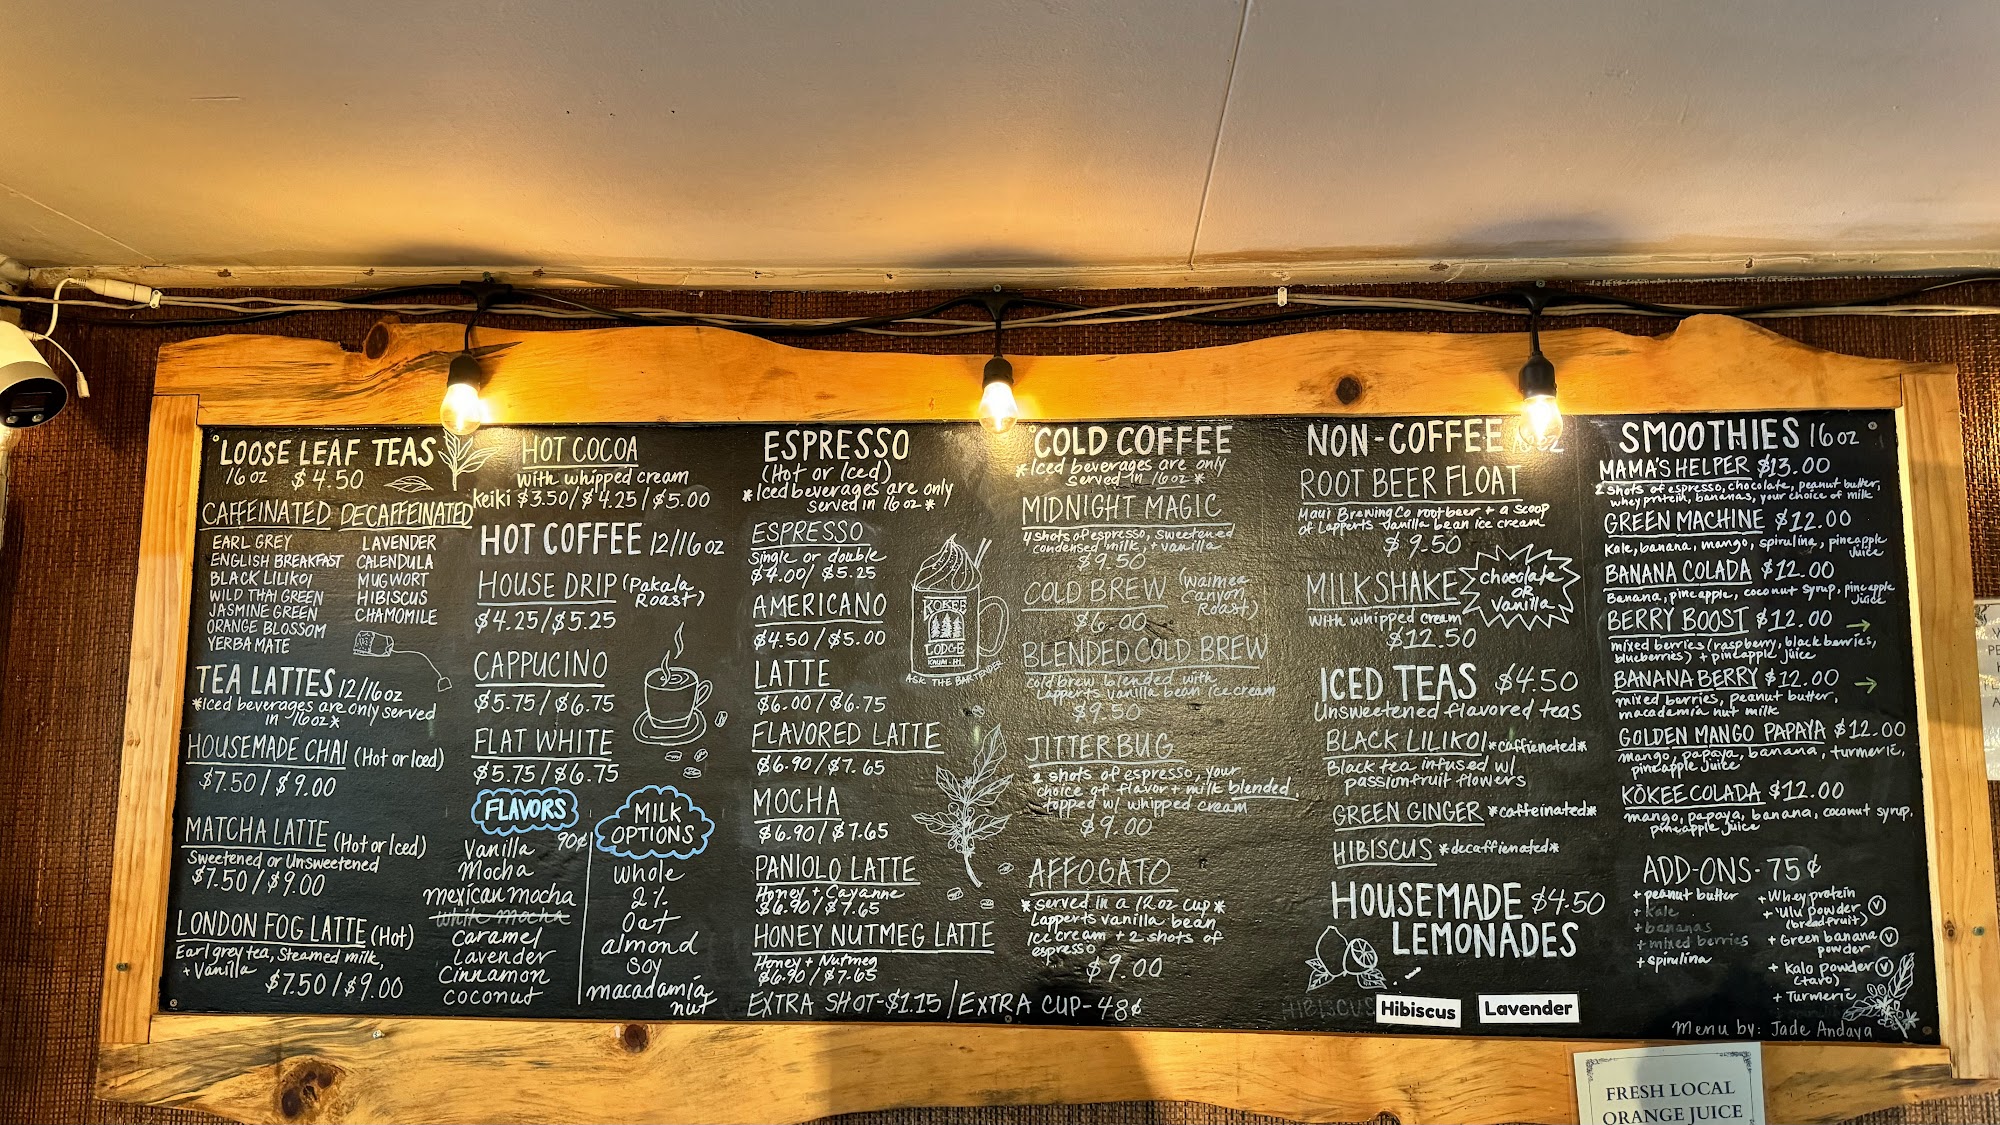 LOOSE LEAF TEAS
16 oz $4.50
CAFFEINATED
EARL GREY
ENGLISH BREAKFAST
BLACK LILIKOI
WILD THAI GREEN
JASMINE GREEN
ORANGE BLOSSOM
YERBA MATE
DECAFFEINATED
LAVENDER
CALENDULA
MUGWORT
HIBISCUS
CHAMOMILE
TEA LATTES 12/16 oz
*Iced beverages are only served
in 16oz*
HOUSEMADE CHAI (Hot or Iced)
$7.50/$9.00
MATCHA LATTE (Hot or Iced)
Sweetened or Unsweetened
$7.50/$9.00
LONDON FOG LATTE (Hot)
Earl grey tea, Steamed milk,
+ Vanilla
$7.50/$9.00
HOT COCOA
with whipped cream
keiki $3.50/$4.25/$5.00
HOT COFFEE 12/16 oz
HOUSE DRIP (Pakala
Roast)
$4.25/$5.25
CAPPUCINO
$5.75/$6.75
FLAT WHITE
$5.75/$6.75
FLAVORS
90¢
Vanilla
Mocha
mexican mocha
white mocha
caramel
Lavender
Cinnamon
coconut
MILK
OPTIONS
whole
2%
Oat
almond
Soy
macadamia
nut
ESPRESSO
(Hot or Iced)
*Iced beverages are only
served in 16 oz*
ESPRESSO
Single or double
$4.00/$5.25
AMERICANO
$4.50/$5.00
LATTE
$6.00/$6.75
FLAVORED LATTE
$6.90/$7.65
MOCHA
$6.90/$7.65
PANIOLO LATTE
Honey + Cayanne
$6.90/$7.65
HONEY NUTMEG LATTE
Honey + Nutmeg
$6.90/$7.65
EXTRA SHOT-$1.15/EXTRA CUP-48¢
KOKEE
LODGE
KAUAI-HI
ASK THE BARTENDER
COLD COFFEE
*Iced beverages are only
served in 16oz*
MIDNIGHT MAGIC
4 shots of espresso, sweetened
condensed milk, + vanilla
$9.50
COLD BREW (Waimea
Canyon
Roast)
$6.00
BLENDED COLD BREW
Cold brew blended with
Lapperts vanilla bean ice cream
$9.50
JITTERBUG
2 shots of espresso, your
choice of flavor + milk blended,
topped w/ whipped cream
$9.00
AFFOGATO
*served in a 12oz cup*
Lapperts vanilla bean
Ice cream + 2 shots of
espresso
$9.00
NON-COFFEE
ROOT BEER FLOAT
Maui Brewing Co rootbeer + a scoop
of Lapperts vanilla bean ice cream
$9.50
MILKSHAKE
chocolate
OR
Vanilla
with whipped cream
$12.50
ICED TEAS $4.50
Unsweetened flavored teas
BLACK LILIKOI *caffienated*
Black tea infused w/
passionfruit flowers
GREEN GINGER *caffeinated*
HIBISCUS *decaffienated*
HOUSEMADE $4.50
LEMONADES
HIBISCUS
Hibiscus
Lavender
SMOOTHIES 16 oz
MAMA'S HELPER $13.00
2 shots of espresso, chocolate, peanut butter,
whey protein, bananas, your choice of milk
GREEN MACHINE $12.00
Kale, banana, mango, spirulina, pineapple
juice
BANANA COLADA $12.00
Banana, pineapple, coconut syrup, pineapple
juice
BERRY BOOST $12.00 →
mixed berries (raspberry, black berries,
blueberries) + pineapple juice
BANANA BERRY $12.00 →
mixed berries, peanut butter,
macadamia nut milk
GOLDEN MANGO PAPAYA $12.00
mango, papaya, banana, turmeric,
pineapple juice
KŌKEE COLADA $12.00
mango, papaya, banana, coconut syrup,
pineapple juice
ADD-ONS-75¢
+ peanut butter
+ kale
+ bananas
+ mixed berries
+ spirulina
+ Whey protein
+ 'Ulu powder Ⓥ
(breadfruit)
+ Green banana Ⓥ
powder
+ Kalo powder Ⓥ
(taro)
+ Turmeric
Menu by: Jade Andaya
FRESH LOCAL
ORANGE JUICE